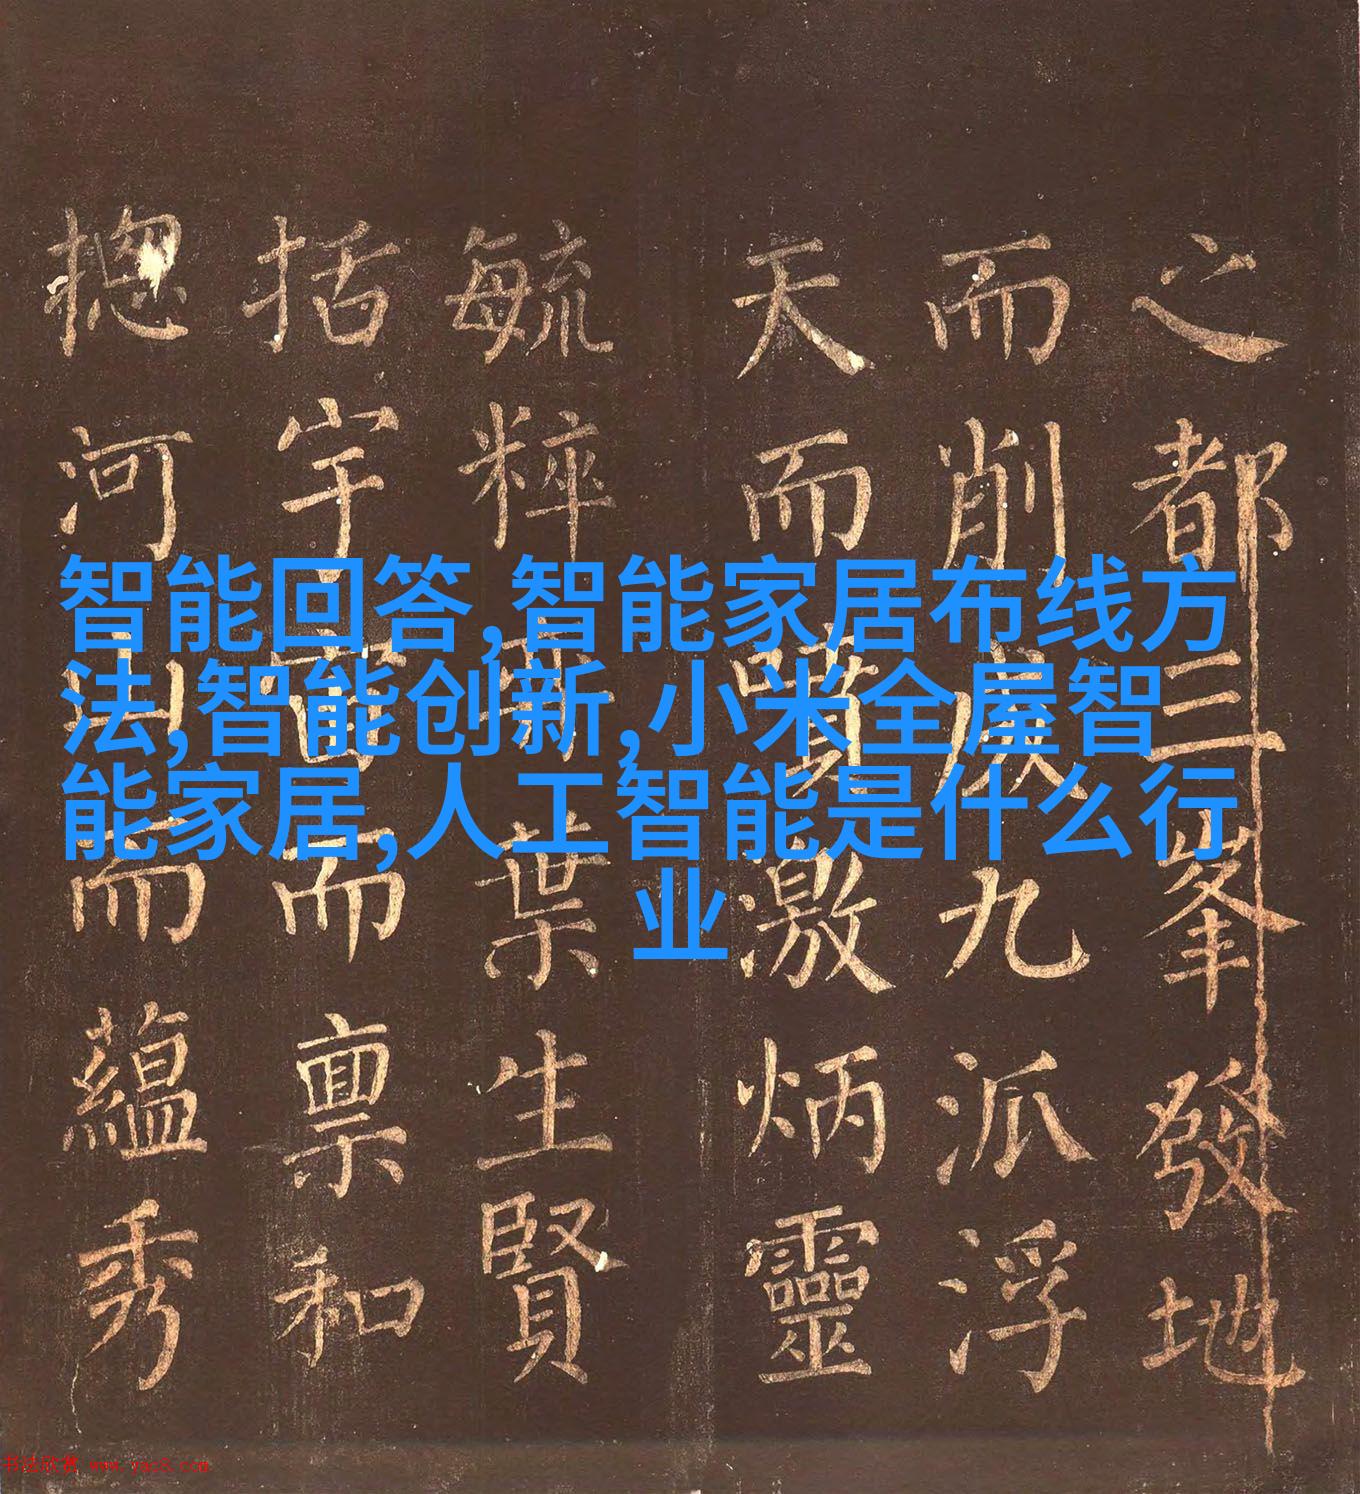 智能回答,智能家居布线方
法,智能创新,小米全屋智
能家居,人工智能是什么行
业
之都三峯發地
而削成九派浮
天而噴激炳靈
毓粹葉生賢
括宇宙而稟和
揔河山而蘊秀
书法欣赏 www.yac8.com